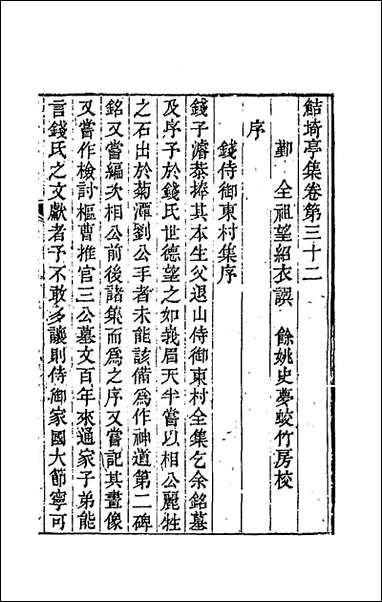 鮚埼亭集卷第三十二
鄞 全祖望紹衣譔 餘姚史夢蛟竹房校
序
錢侍御東村集序
錢子濬恭捧其本生父退山侍御東村全集乞余銘墓
及序予於錢氏世德望之如我眉天半嘗以相公麗牲
之石出於菊潭劉公手者未能該備爲作神道第二碑
銘又嘗編次相公前後諸集而爲之序又嘗記其畫像
又嘗作檢討樞曹推官三公墓文百年來通家子弟能
言錢氏之文獻者予不敢多讓則侍御家國大節寧可